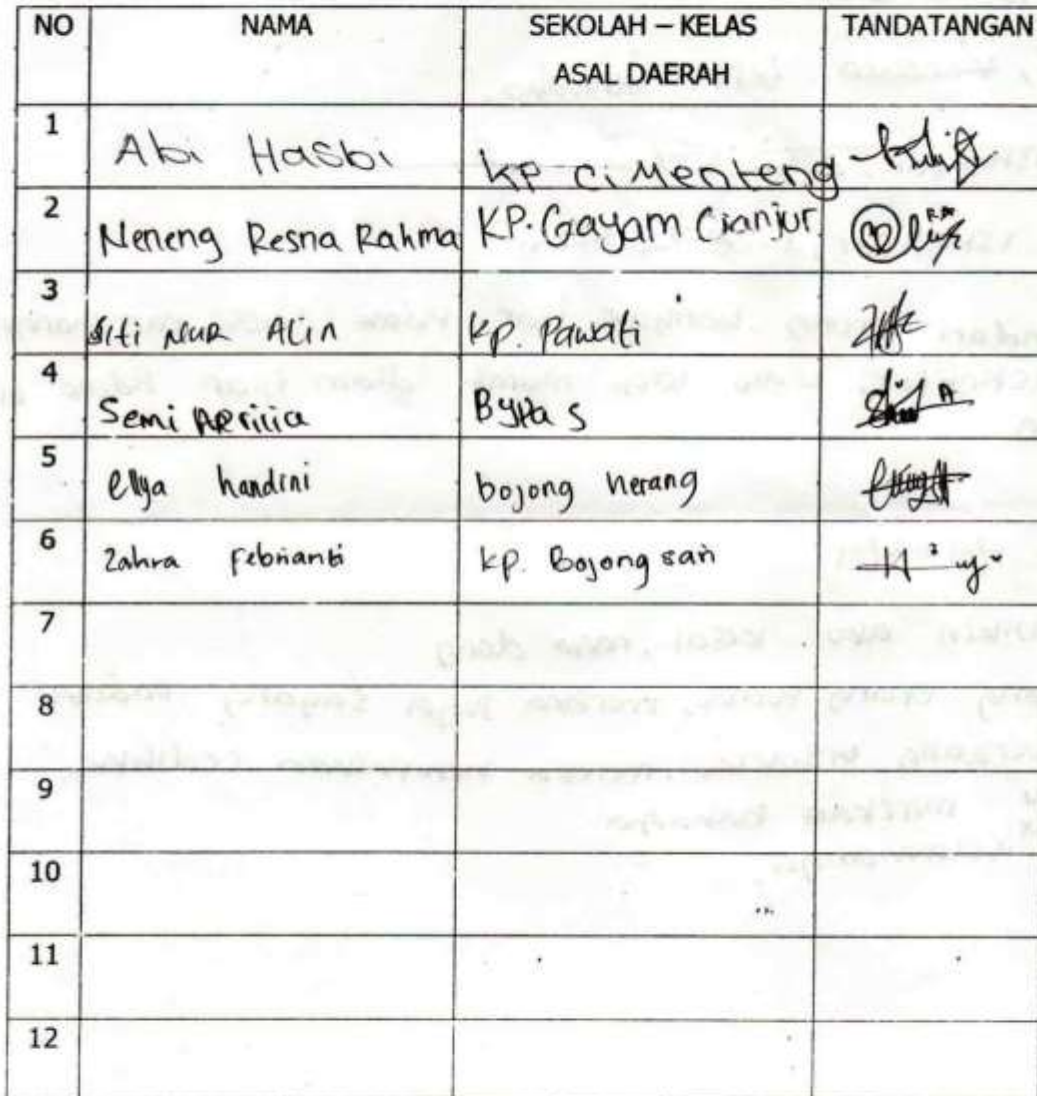 NO NAMA SEKOLAH – KELAS TANDATANGAN
ASAL DAERAH
1 Abi Hasbi KP Cimenteng
2 Neneng Resna Rahma KP. Gayam Cianjur
3 Siti Nur Alin Kp. Pawati
4 Semi Aprilia
5 ellya handini bojong herang
6 Zahra Febrianti kp. Bojong sari
7
8
9
10
11
12